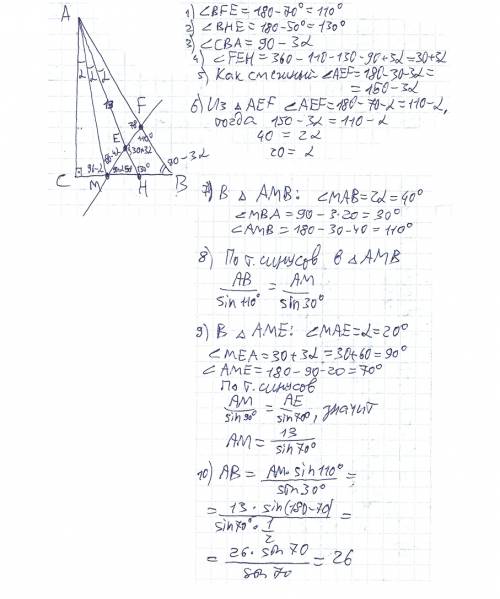 A
α α α
13
F
70
110°
E
30+3α
90-3α
C
M
130°
H
B
1) ∠BFE = 180-70° = 110°
2) ∠BHE = 180-50° = 130°
3) ∠CBA = 90 - 3α
4) ∠FEH = 360-110-130-90+3α=30+3α
5) Как смежный ∠AEF=180-30-3α=
= 150-3α
6) Из △AEF ∠AEF=180-70-α=110-α,
тогда 150-3α=110-α
40 = 2α
20 = α
7) В △ AMB: ∠MAB=2α=40°
∠MBA = 90 - 3·20 = 30°
∠AMB = 180-30-40 = 110°
8) По т. синусов в △AMB
AB/sin 110° = AM/sin 30°
9) В △ AME: ∠MAE=α=20°
∠MEA = 30+3α = 30+60 = 90°
∠AME = 180-90-20 = 70°
По т. синусов
AM/sin 90° = AE/sin 70°, значит
AM = 13/sin 70°
10) AB = AM·sin 110°/sin 30° =
= 13·sin(180-70)/sin 70°·1/2 =
= 26·sin 70/sin 70 = 26